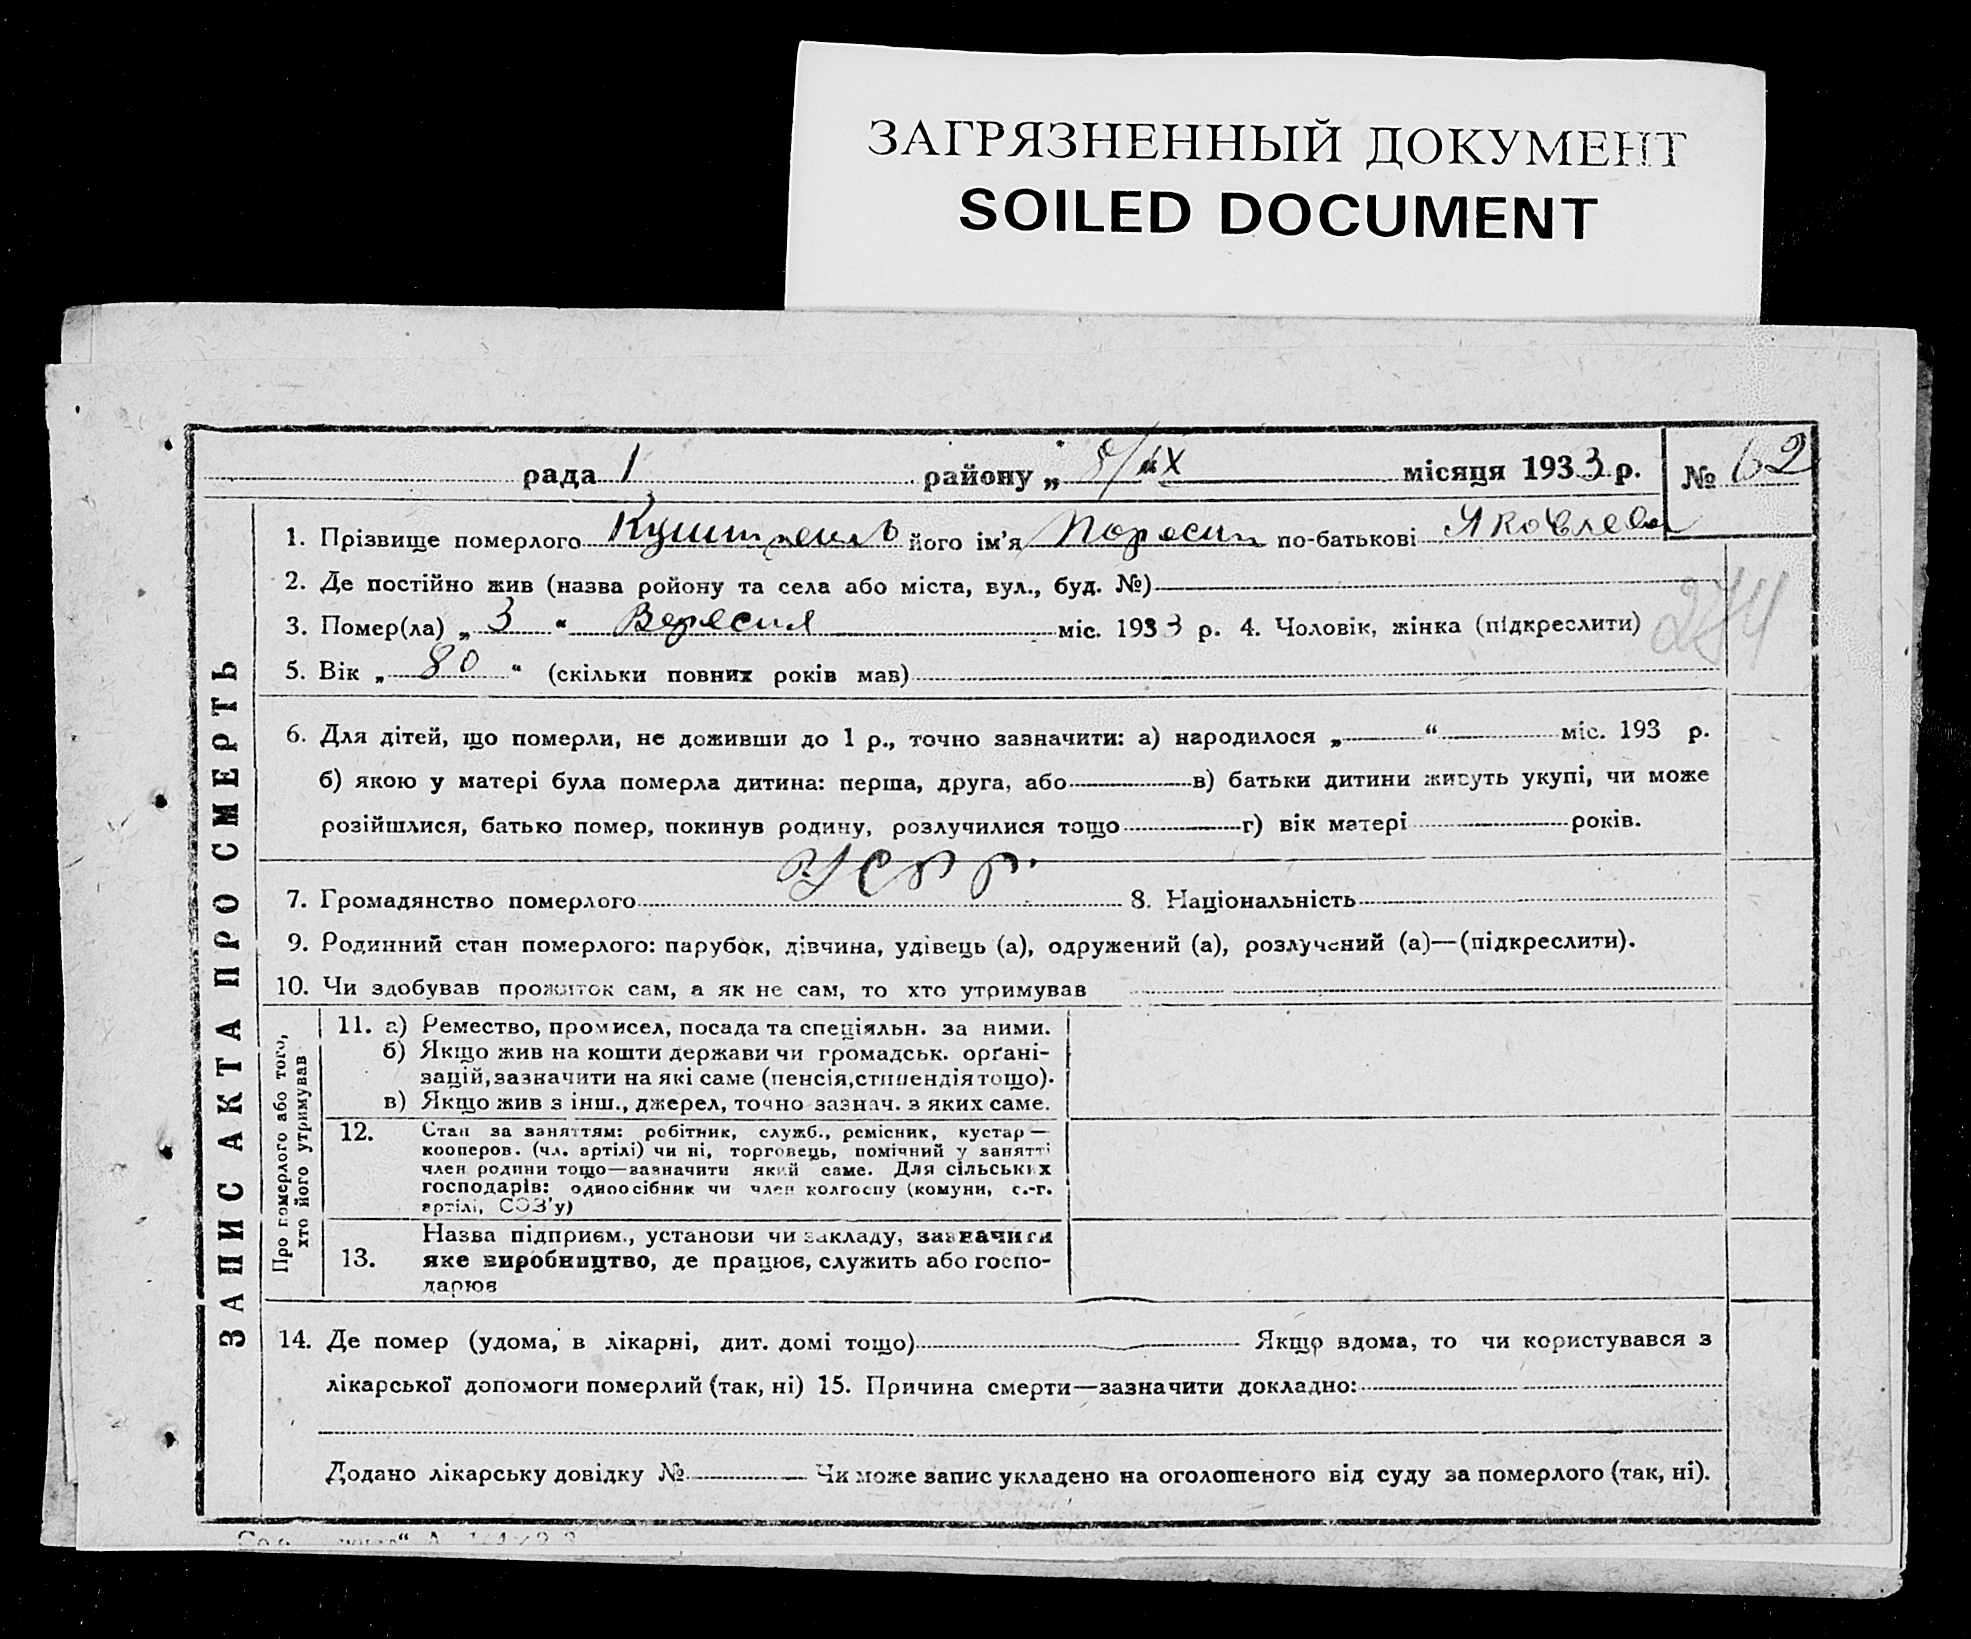 ЗАГРЯЗНЕННЫЙ ДОКУМЕНТ
SOILED DOCUMENT
рада 1 району „ 8/IX місяця 1933 р. № 62
1. Прізвище померлого його ім’я по-батькові
2. Де постійно жив (назва ройону та села або міста, вул., буд. №)
3. Помер(ла) „ 3 “ Вересня міс. 1933 р. 4. Чоловік, жінка (підкреслити)
274
5. Вік „ 80 “ (скільки повних років мав)
6. Для дітей, що померли, не доживши до 1 р., точно зазначити: а) народилося „ “ міс. 193 р.
б) якою у матері була померла дитина: перша, друга, або в) батьки дитини живуть укупі, чи може
розійшлися, батько помер, покинув родину, розлучилися тощо г) вік матері років.
7. Громадянство померлого УСРР. 8. Національність
9. Родинний стан померлого: парубок, дівчина, удівець (а), одружений (а), розлучений (а)—(підкреслити).
10. Чи здобував прожиток сам, а як не сам, то хто утримував
ЗАПИС АКТА ПРО СМЕРТЬ
Про померлого або того,
хто його утримував
11. а) Ремество, промисел, посада та спеціяльн. за ними.
б) Якщо жив на кошти держави чи громадськ. орґані-
зацій, зазначити на які саме (пенсія, стипендія тощо).
в) Якщо жив з інш., джерел, точно зазнач. з яких саме.
12. Стан за заняттям: робітник, служб., ремісник, кустар—
кооперов. (чл. артілі) чи ні, торговець, помічний у занятті
член родини тощо—зазначити який саме. Для сільських
господарів: одноосібник чи член колгоспу (комуни, с.-г.
артілі, СОЗ’у)
13. Назва підприєм., установи чи закладу, зазначити
яке виробництво, де працює, служить або госпо-
дарює
14. Де помер (удома, в лікарні, дит. домі тощо) Якщо вдома, то чи користувався з
лікарської допомоги померлий (так, ні) 15. Причина смерти—зазначити докладно:
Додано лікарську довідку № Чи може запис укладено на оголошеного від суду за померлого (так, ні).